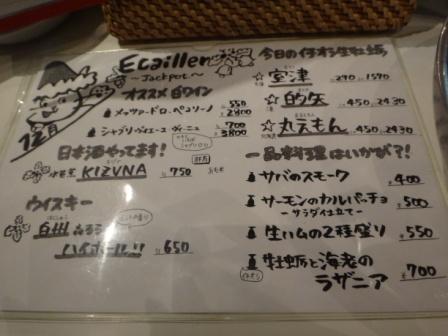 12月
Ecailler
~Jackpot~
オススメ白ワイン
メッツァードロ、ペコリーノ 550
2800
シャブリ・ヴィエーユ・ヴィーニュ 700
3800
日本酒やってます!
KIZUNA 750
ウイスキー
白州 森香る
ハイボール!! 650
今日のイチオシ生牡蛎
☆室津 290 1570
☆的矢 450 2430
☆丸えもん 450 2430
一品料理はいかが?!
サバのスモーク ¥400
サーモンのカルパッチョ
~サラダ仕立て~ ¥500
生ハムの2種盛り ¥550
牡蛎と海老の
ラザニア ¥700